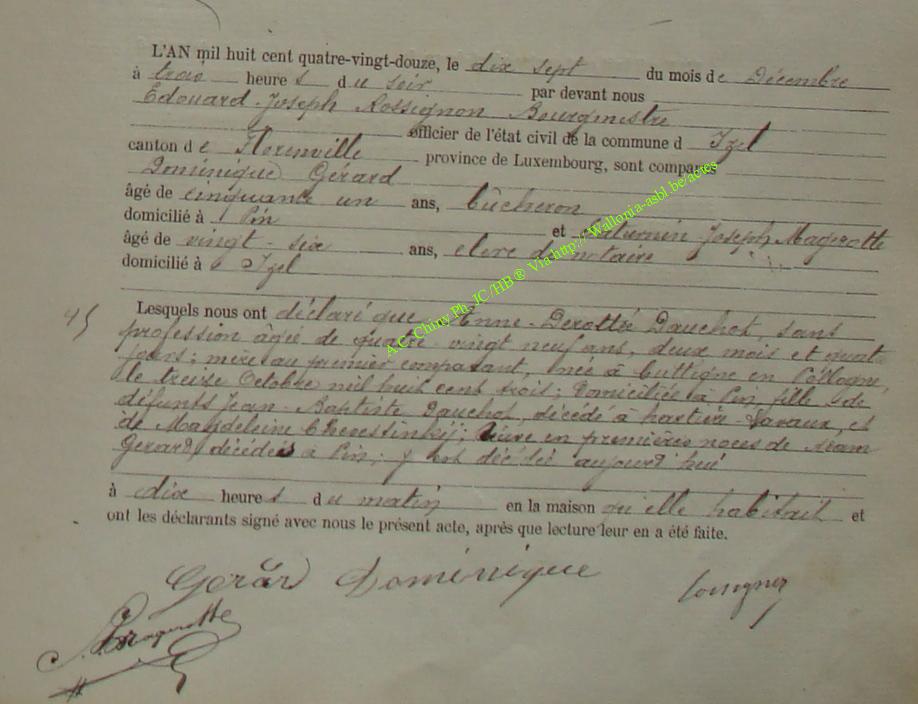 L'AN mil huit cent quatre-vingt-douze, le dix sept du mois de Décembre
à trois heures du soir par devant nous
Edouard-Joseph Rossignon Bourgmestre
officier de l'état civil de la commune d Izel
canton de Florenville province de Luxembourg, sont comparus
Dominique Gérard
âgé de cinquante un ans, bûcheron
domicilié à Pin et Saturnin Joseph Magerotte
âgé de vingt-six ans, clerc de notaire
domicilié à Izel
45
Lesquels nous ont déclaré que Anne-Dorottée Dauchot, sans
profession âgée de quatre-vingt neuf ans, deux mois et quatre
jours; mère au premier comparant, née à en Pologne,
le treize Octobre mil huit cent trois; domiciliée à Pin, fille de
défunts Jean-Baptiste Dauchot, décédé à et
de Magdeleine Veuve en premières noces de
Gerard, décédés à Pin; y est décédée aujourd'hui
à dix heures du matin en la maison qu'elle habitait et
ont les déclarants signé avec nous le présent acte, après que lecture leur en a été faite.
Gérár Dominique
Magerotte
A.C. Chiny Ph. JC/HB® Via http://Wallonia-asbl.be/actes